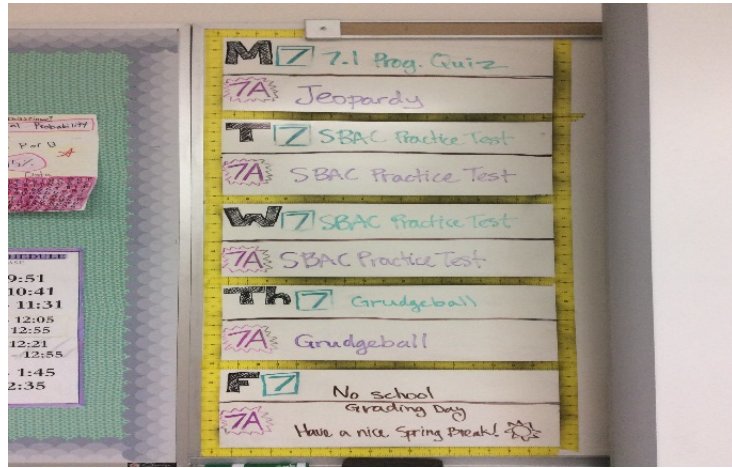 al Probability
P or U
SCHEDULE
9:51
10:41
- 11:31
- 12:05
12:55
12:21
- 12:55
- 1:45
2:35
M 7 7.1 Prog. Quiz
7A Jeopardy
T 7 SBAC Practice Test
7A SBAC Practice Test
W 7 SBAC Practice Test
7A SBAC Practice Test
Th 7 Grudgeball
7A Grudgeball
F 7 No school
Grading Day
7A Have a nice Spring Break!